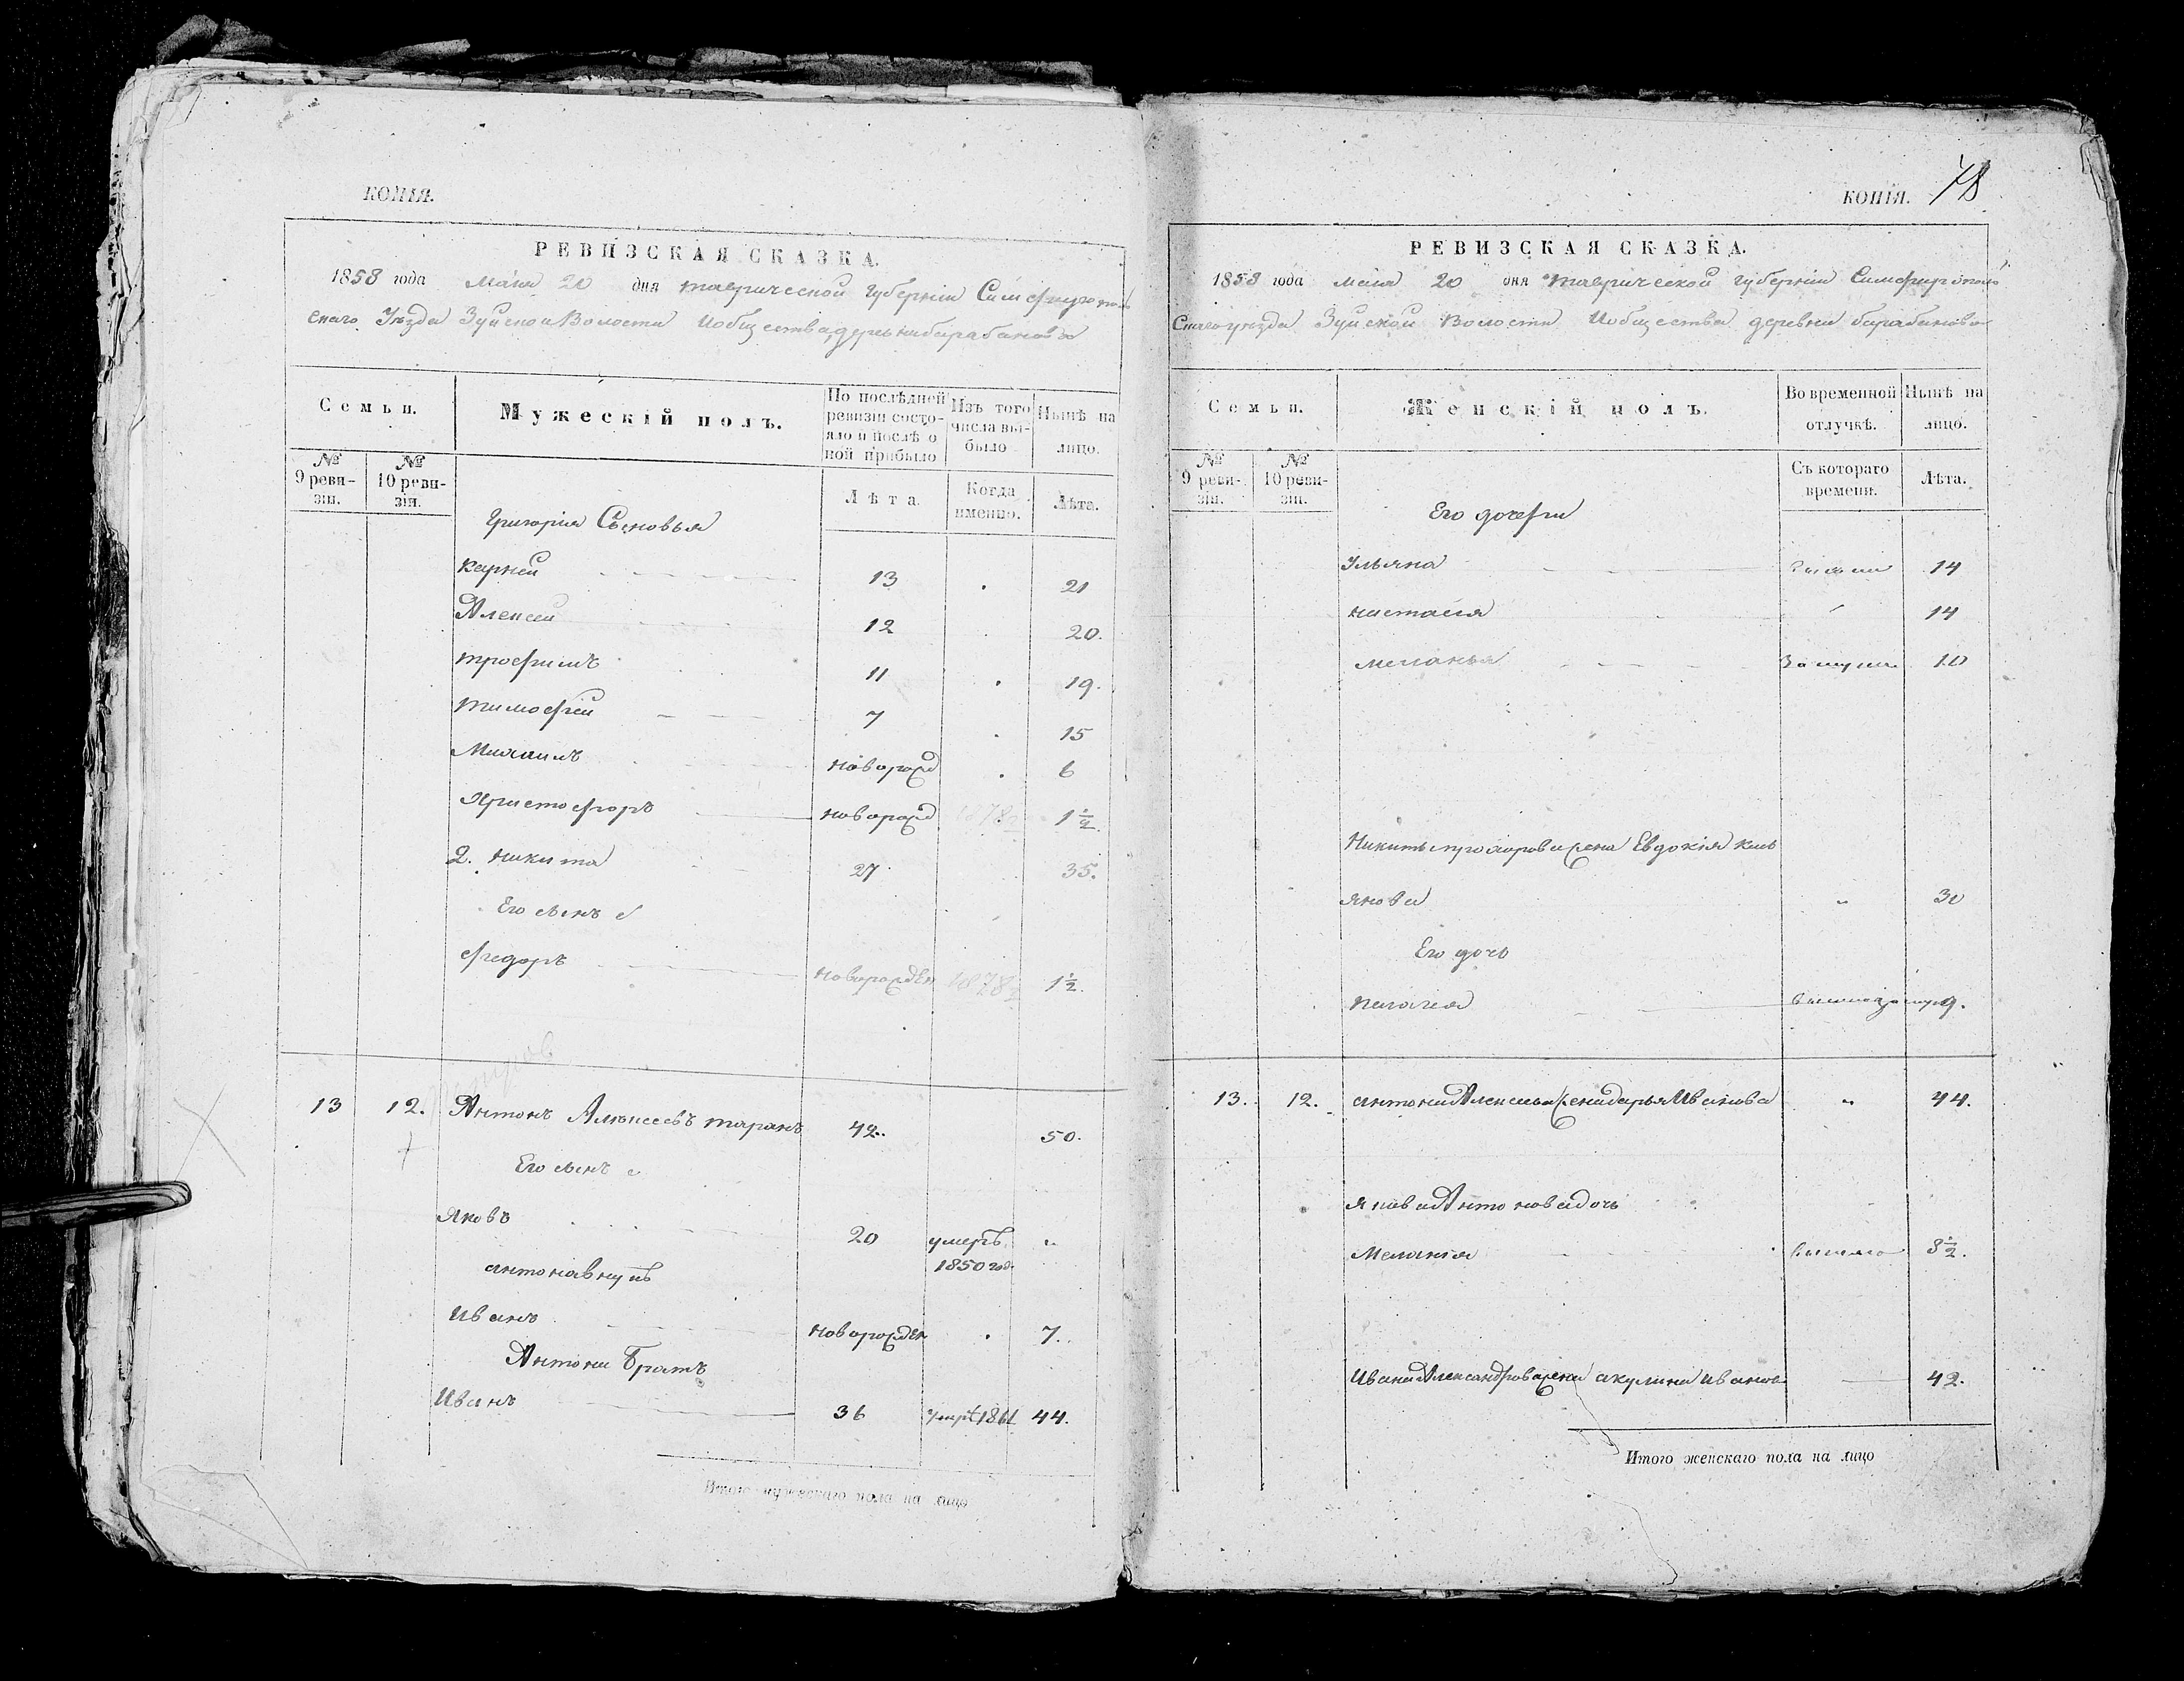 КОПІЯ.
РЕВИЗСКАЯ СКАЗКА.
1858 года Маия 20 дня таврической губерніи Симферополь
скаго Уѣзда Зуйской Волости Иобщества деревни барабанова
Семьи.
Мужескій полъ.
По послѣдней ревизіи состояло и послѣ оной прибыло
Изъ того числа выбыло
Нынѣ на лицо.
№ 9 ревизіи.
№ 10 ревизіи.
Лѣта.
Когда именно.
Лѣта.
Григорія Сыновья
карней 13 21
Алексей 12 20.
трофимъ 11 19.
тимофей 7 15
Михаилъ новорожд 6
Христофоръ новорожд 1 1/2.
2. никита 27 35.
Его сынъ
федоръ новорожден 1 1/2.
13 12. Антонъ Алексеевъ таранъ 42. 50.
Его сынъ
Яковъ 20 умеръ 1850 год. „
антонавнукъ
Иванъ новорожден 7.
Антона братъ
Иванъ 36 умер 1861 44.
Итого мужескаго пола на лицо
КОПІЯ. 78
РЕВИЗСКАЯ СКАЗКА.
1858 года маия 20 дня таврической губерніи Симферополь
Скаго уезда Зуйской Волости Иобщества деревни барабанова
Семьи.
Женскій полъ.
Во временной отлучкѣ.
Нынѣ на лицо.
№ 9 ревизіи.
№ 10 ревизіи.
Съ котораго времени.
Лѣта.
Его дочери
Ульяна 14
настасия 14
меланья замуж 10
Никиты жена Евдокія
якова „ 30
Его дочь
пелагея 9.
13. 12. антона Алексеева жена дарья Иванова „ 44.
Якова Антонова дочь
Меланія 8 1/2.
Ивана Александрова жена акулина иванов 42.
Итого женскаго пола на лицо